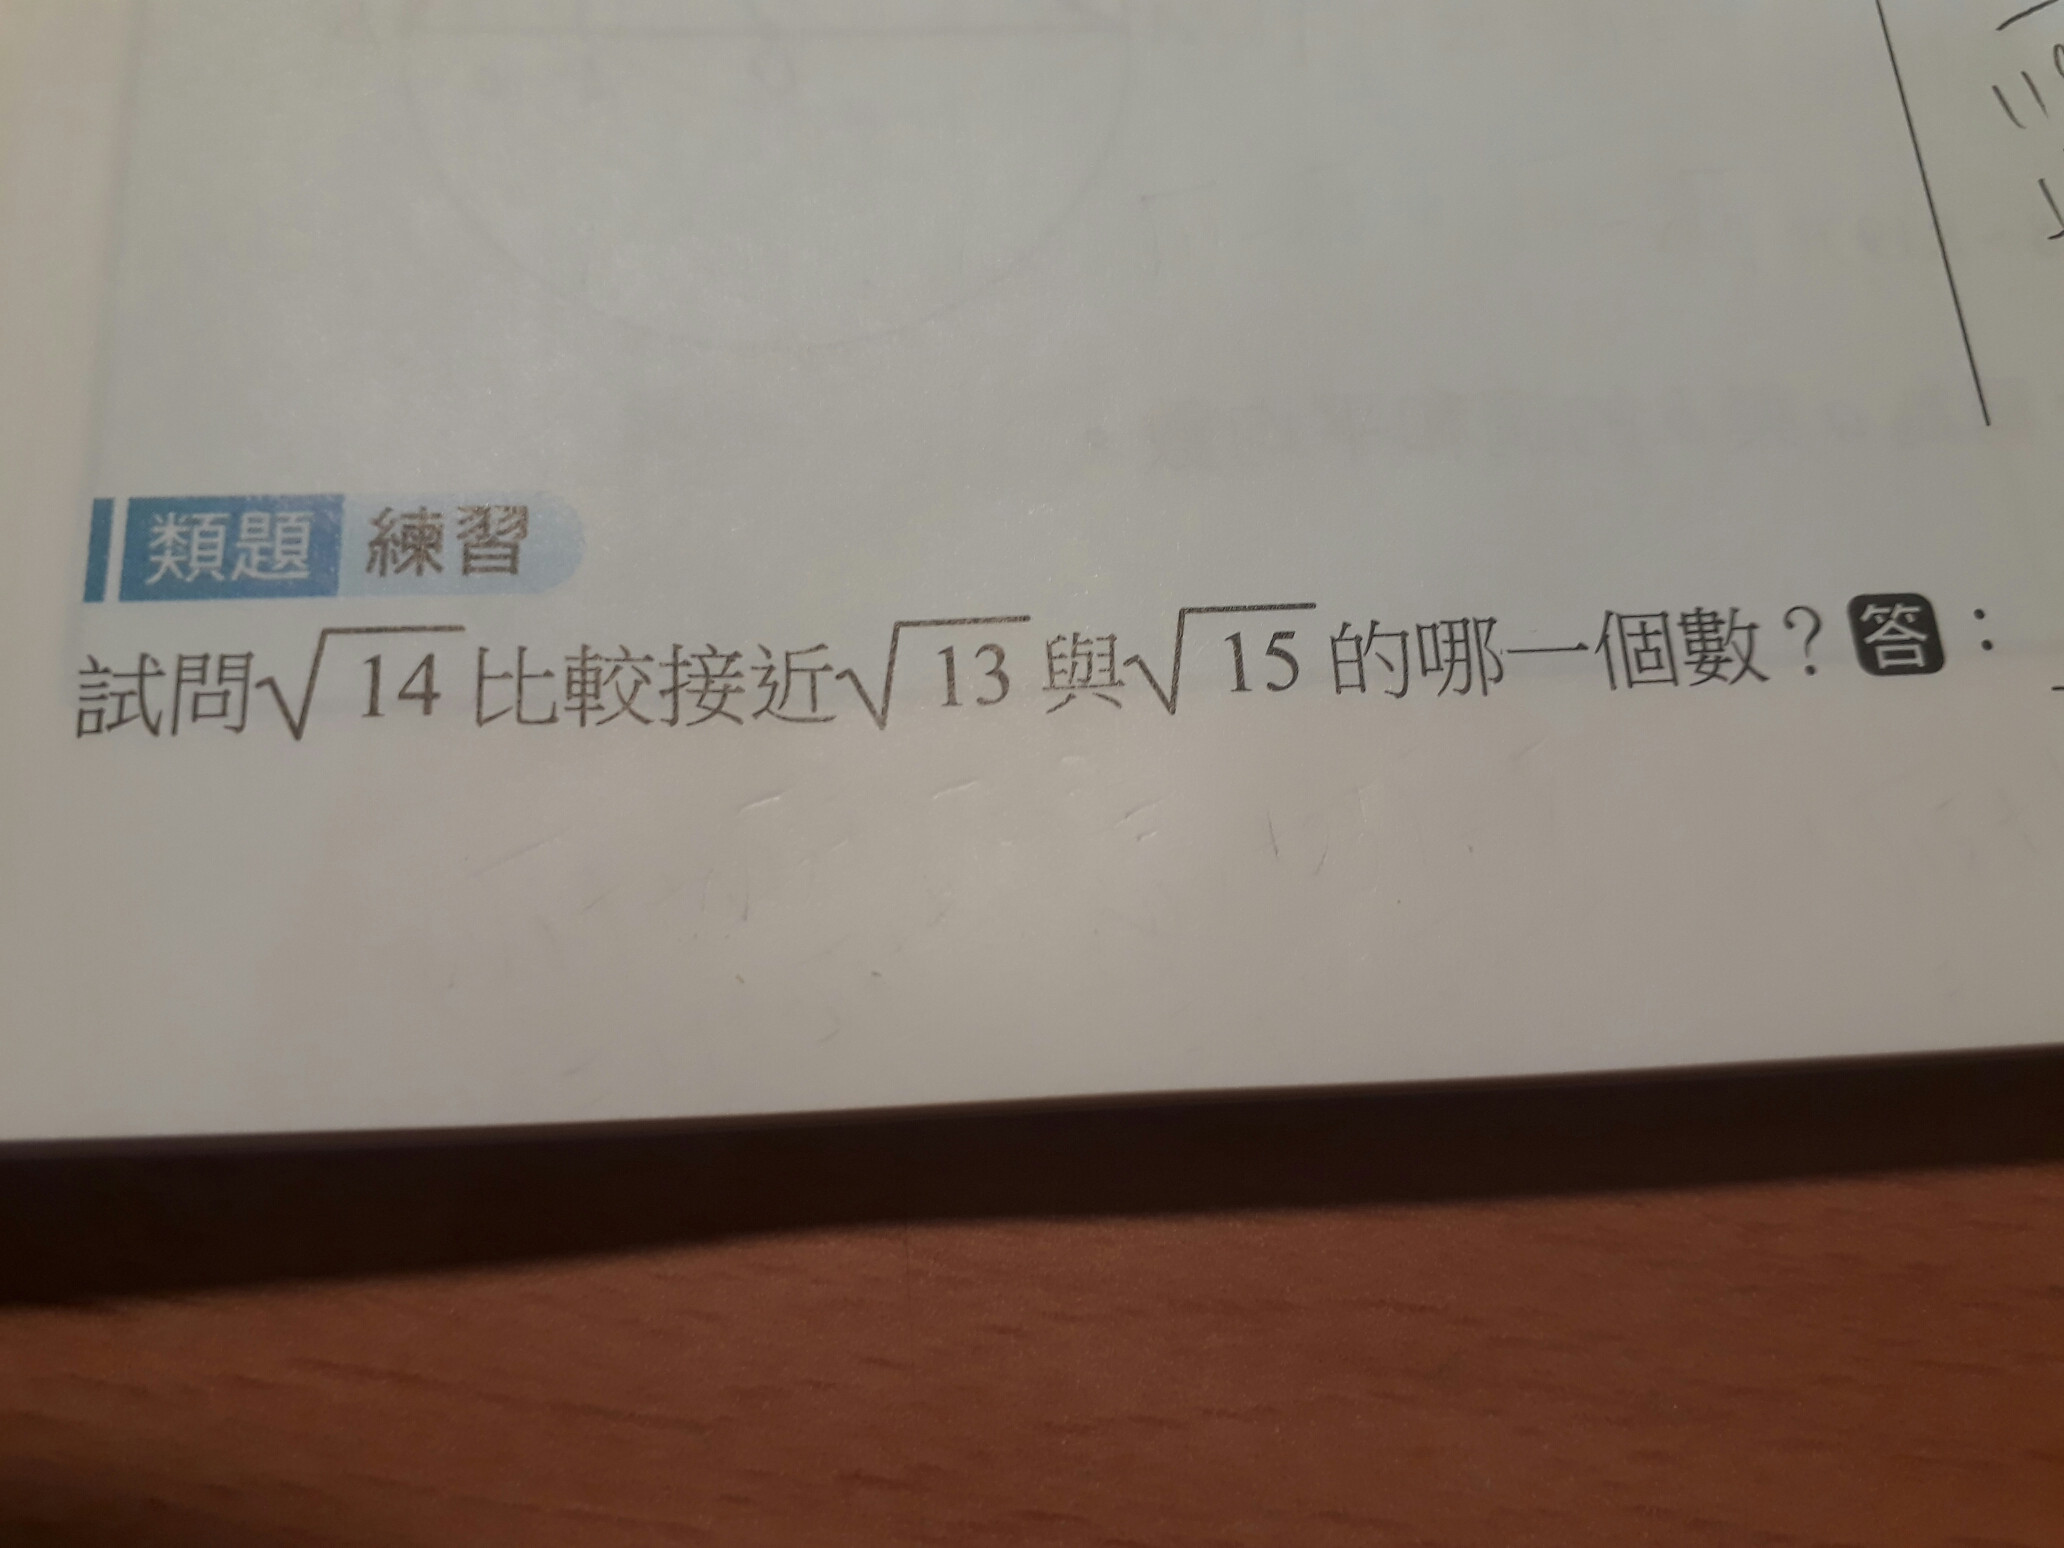 類題 練習
試問√14比較接近√13與√15的哪一個數？答：